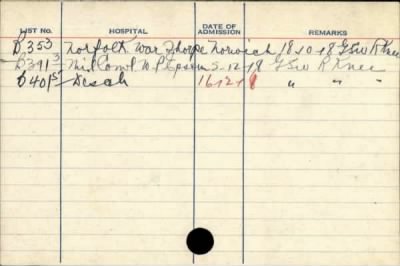 LIST NO. HOSPITAL DATE OF ADMISSION REMARKS
D353 Norfolk War Thorpe Norwich 18-10-18 GSW R Knee
D391 3 Mil Conv. H. Epsom 5-12-18 GSW R Knee
D401 5 Disch 16-12-18 " " "